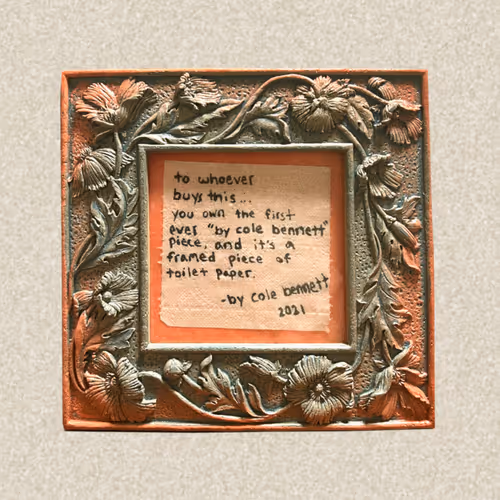 to whoever
buys this...
you own the first
ever "by cole bennett"
piece, and it's a
framed piece of
toilet paper.
-by cole bennett
2021